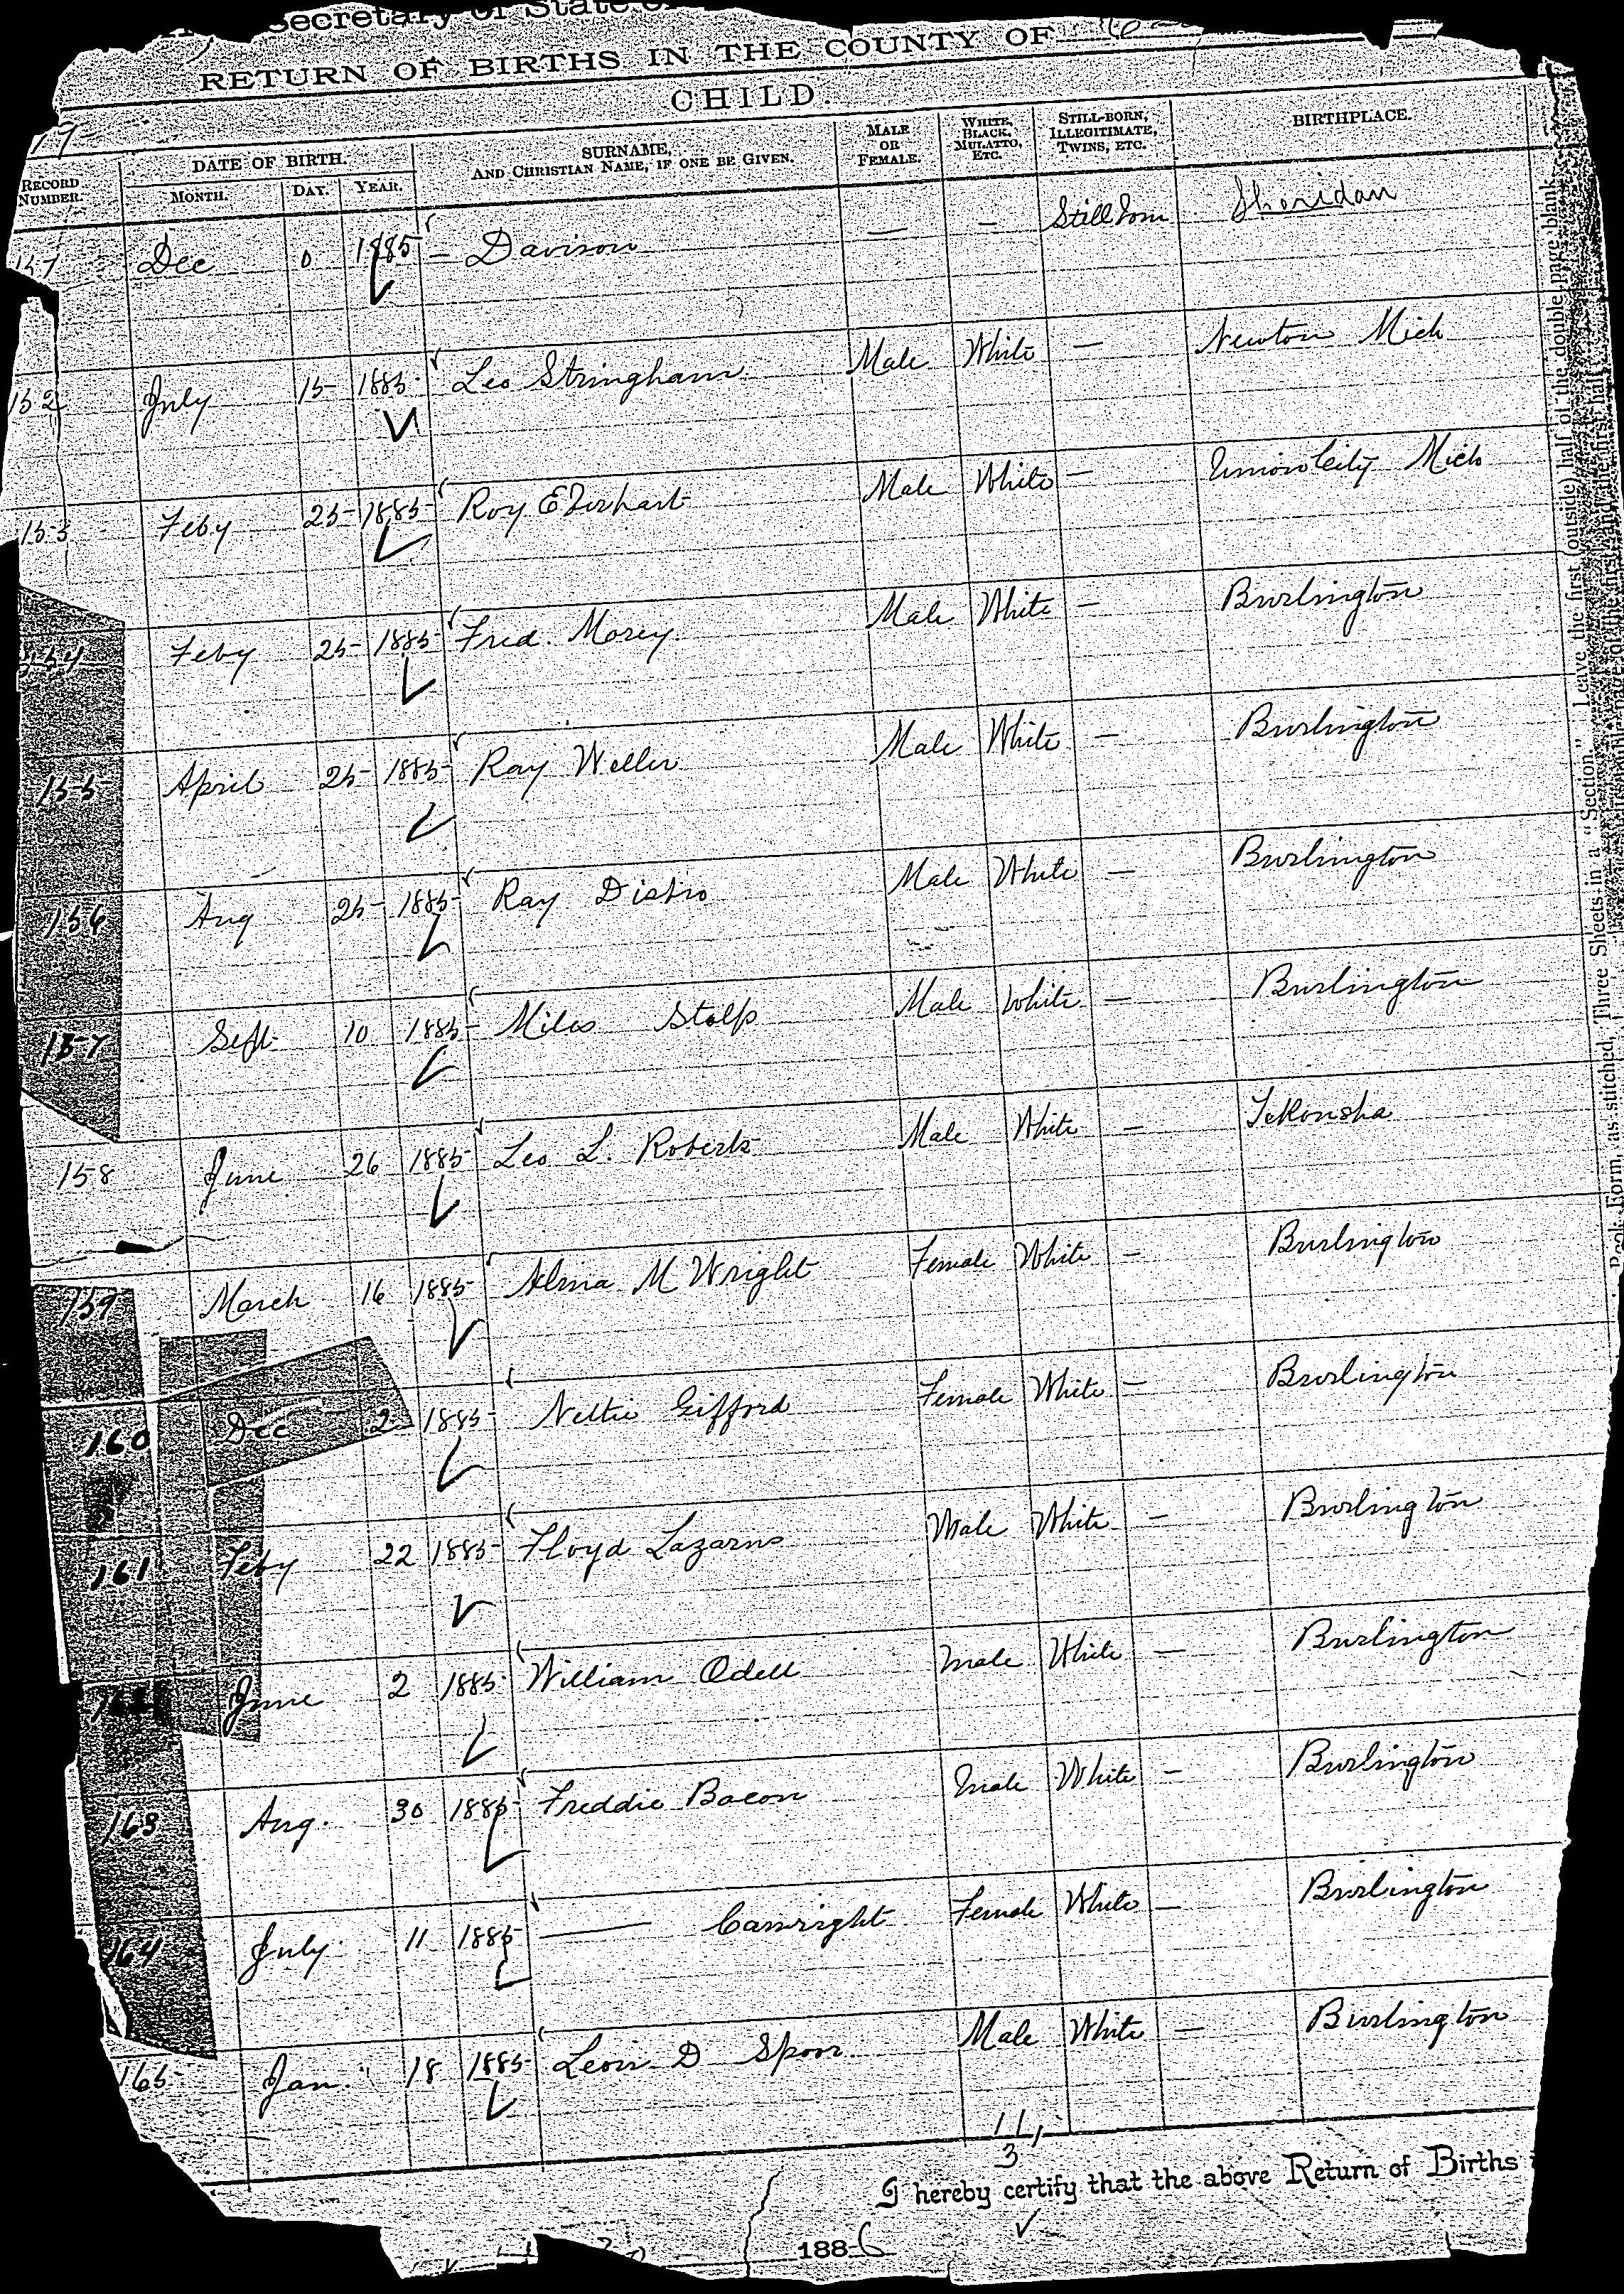 Secretary of State of
RETURN OF BIRTHS IN THE COUNTY OF
CHILD.
RECORD NUMBER. DATE OF BIRTH. MONTH. DAY. YEAR. SURNAME, AND CHRISTIAN NAME, IF ONE BE GIVEN. MALE OR FEMALE. WHITE, BLACK, MULATTO, ETC. STILL-BORN, ILLEGITIMATE, TWINS, ETC. BIRTHPLACE.
Dec 0 1885 — Davison — — Stillborn Sheridan
152 July 15 1885 Leo Stringham Male White — Newton Mich
153 Feby 25 1885 Roy Eberhart Male White — Union City Mich
154 Feby 25 1885 Fred. Morey Male White — Burlington
155 April 25 1885 Ray Weller Male White — Burlington
156 Aug 25 1885 Ray Distro Male White — Burlington
157 Sept 10 1885 Miles Stolp Male White — Burlington
158 June 26 1885 Leo L. Roberts Male White — Tekonsha
159 March 16 1885 Alma M Wright Female White — Burlington
160 Dec 2 1885 Nettie Gifford Female White — Burlington
161 Feby 22 1885 Floyd Lazarus Male White — Burlington
162 June 2 1885 William Odell Male White — Burlington
163 Aug. 30 1885 Freddie Bacon Male White — Burlington
164 July 11 1885 — Canright Female White — Burlington
165 Jan. 18 1885 Leon D Spoor Male White — Burlington
11,
3
I hereby certify that the above Return of Births
1886
Book Form, as stitched, Three Sheets in a "Section." Leave the first (outside) half of the double page blank